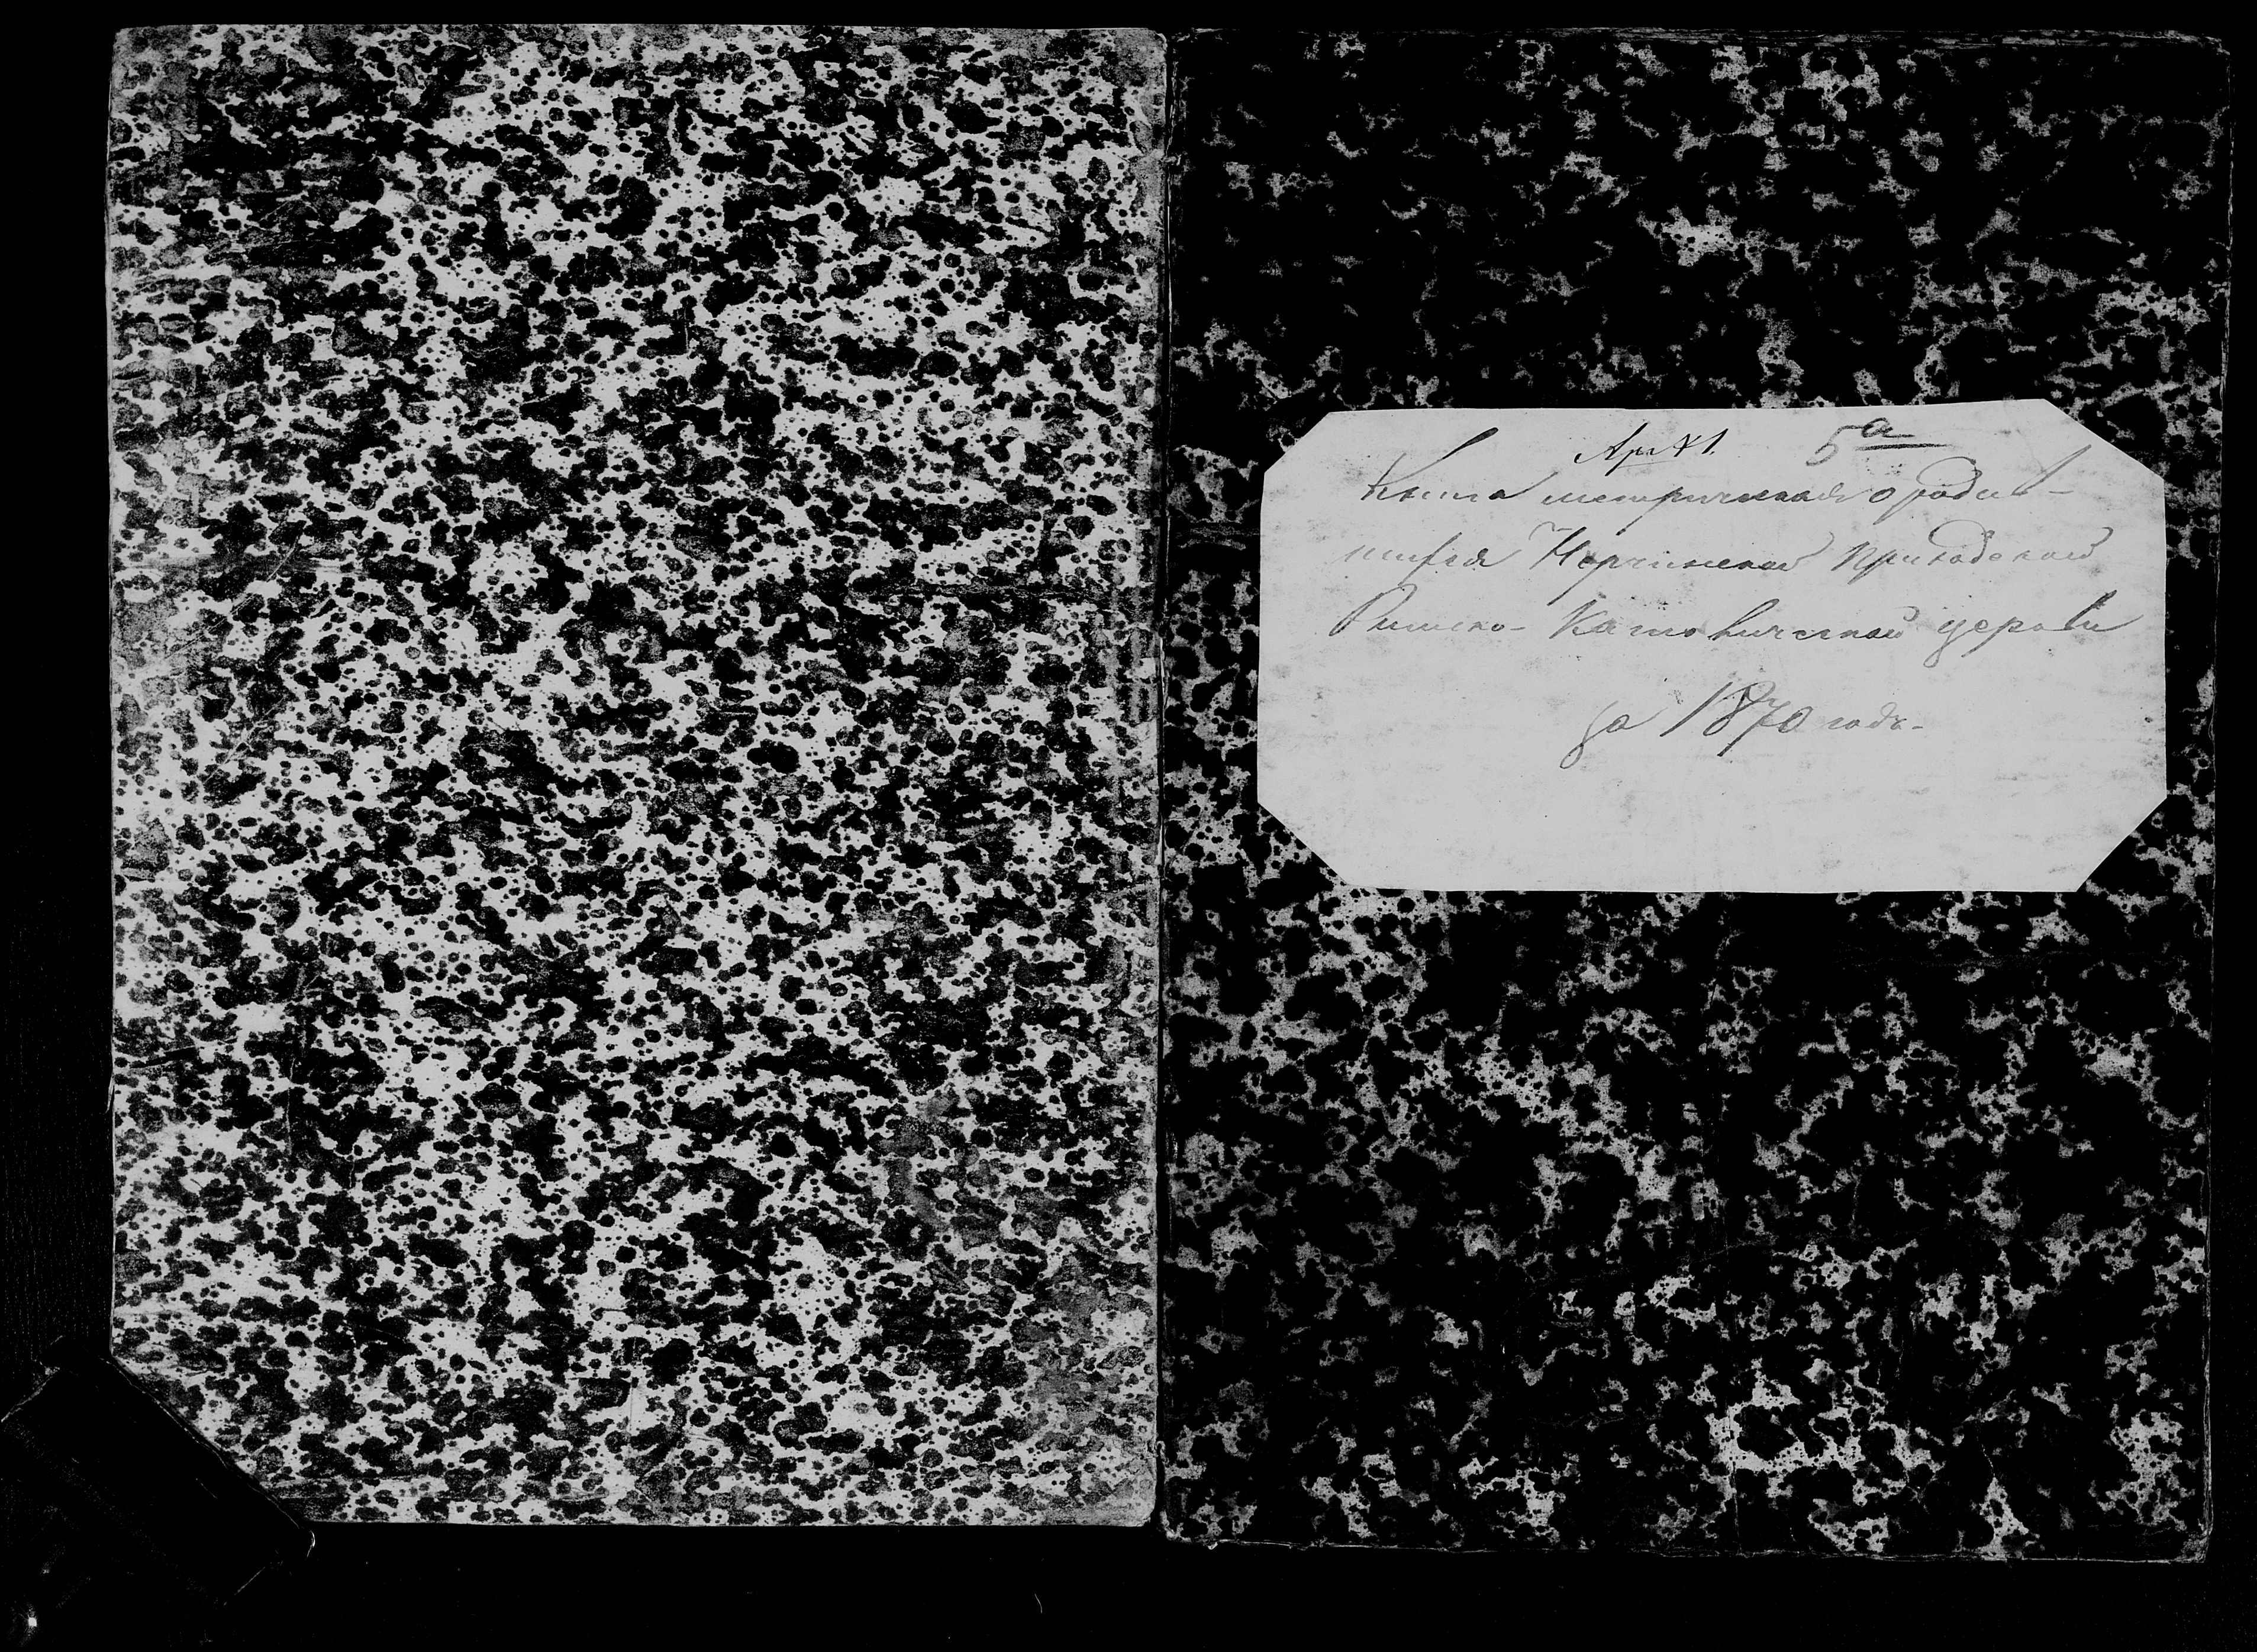 Арх 1. 5а
Книга метрическая о родив-
шихся Нерчинской Приходской
Римско-Католической церкви
за 1870 годъ-